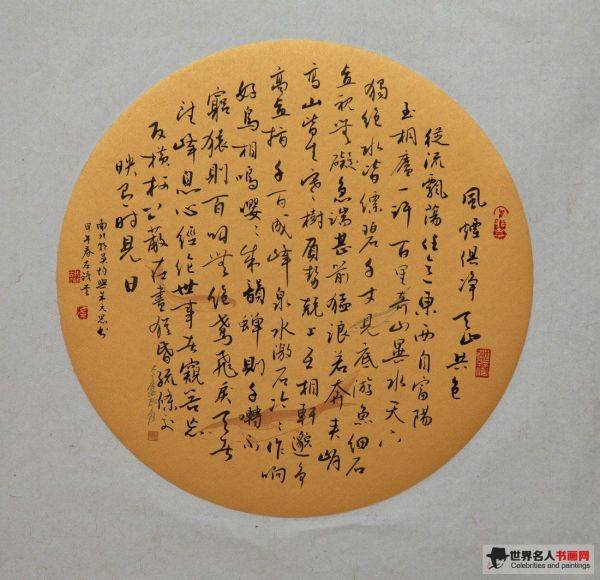 風煙俱净天山共色
從流飄蕩任意東西自富陽
至桐廬一许百里奇山異水天下
獨绝水皆缥碧千丈見底游魚细石
直視無礙急湍甚箭猛浪若奔夹岸
高山皆生寒樹負势競上互相軒邈争
高直指千百成峰泉水激石泠泠作响
好鳥相鳴嘤嘤成韻蝉則千囀不
窮猿則百叫無绝鸢飛戾天者
望峰息心經纶世事者窥谷忘
反横柯上蔽在晝猶昏疏條交
映有时見日
吴均與朱元思书
甲午春
世界名人书画网
Celebrities and paintings